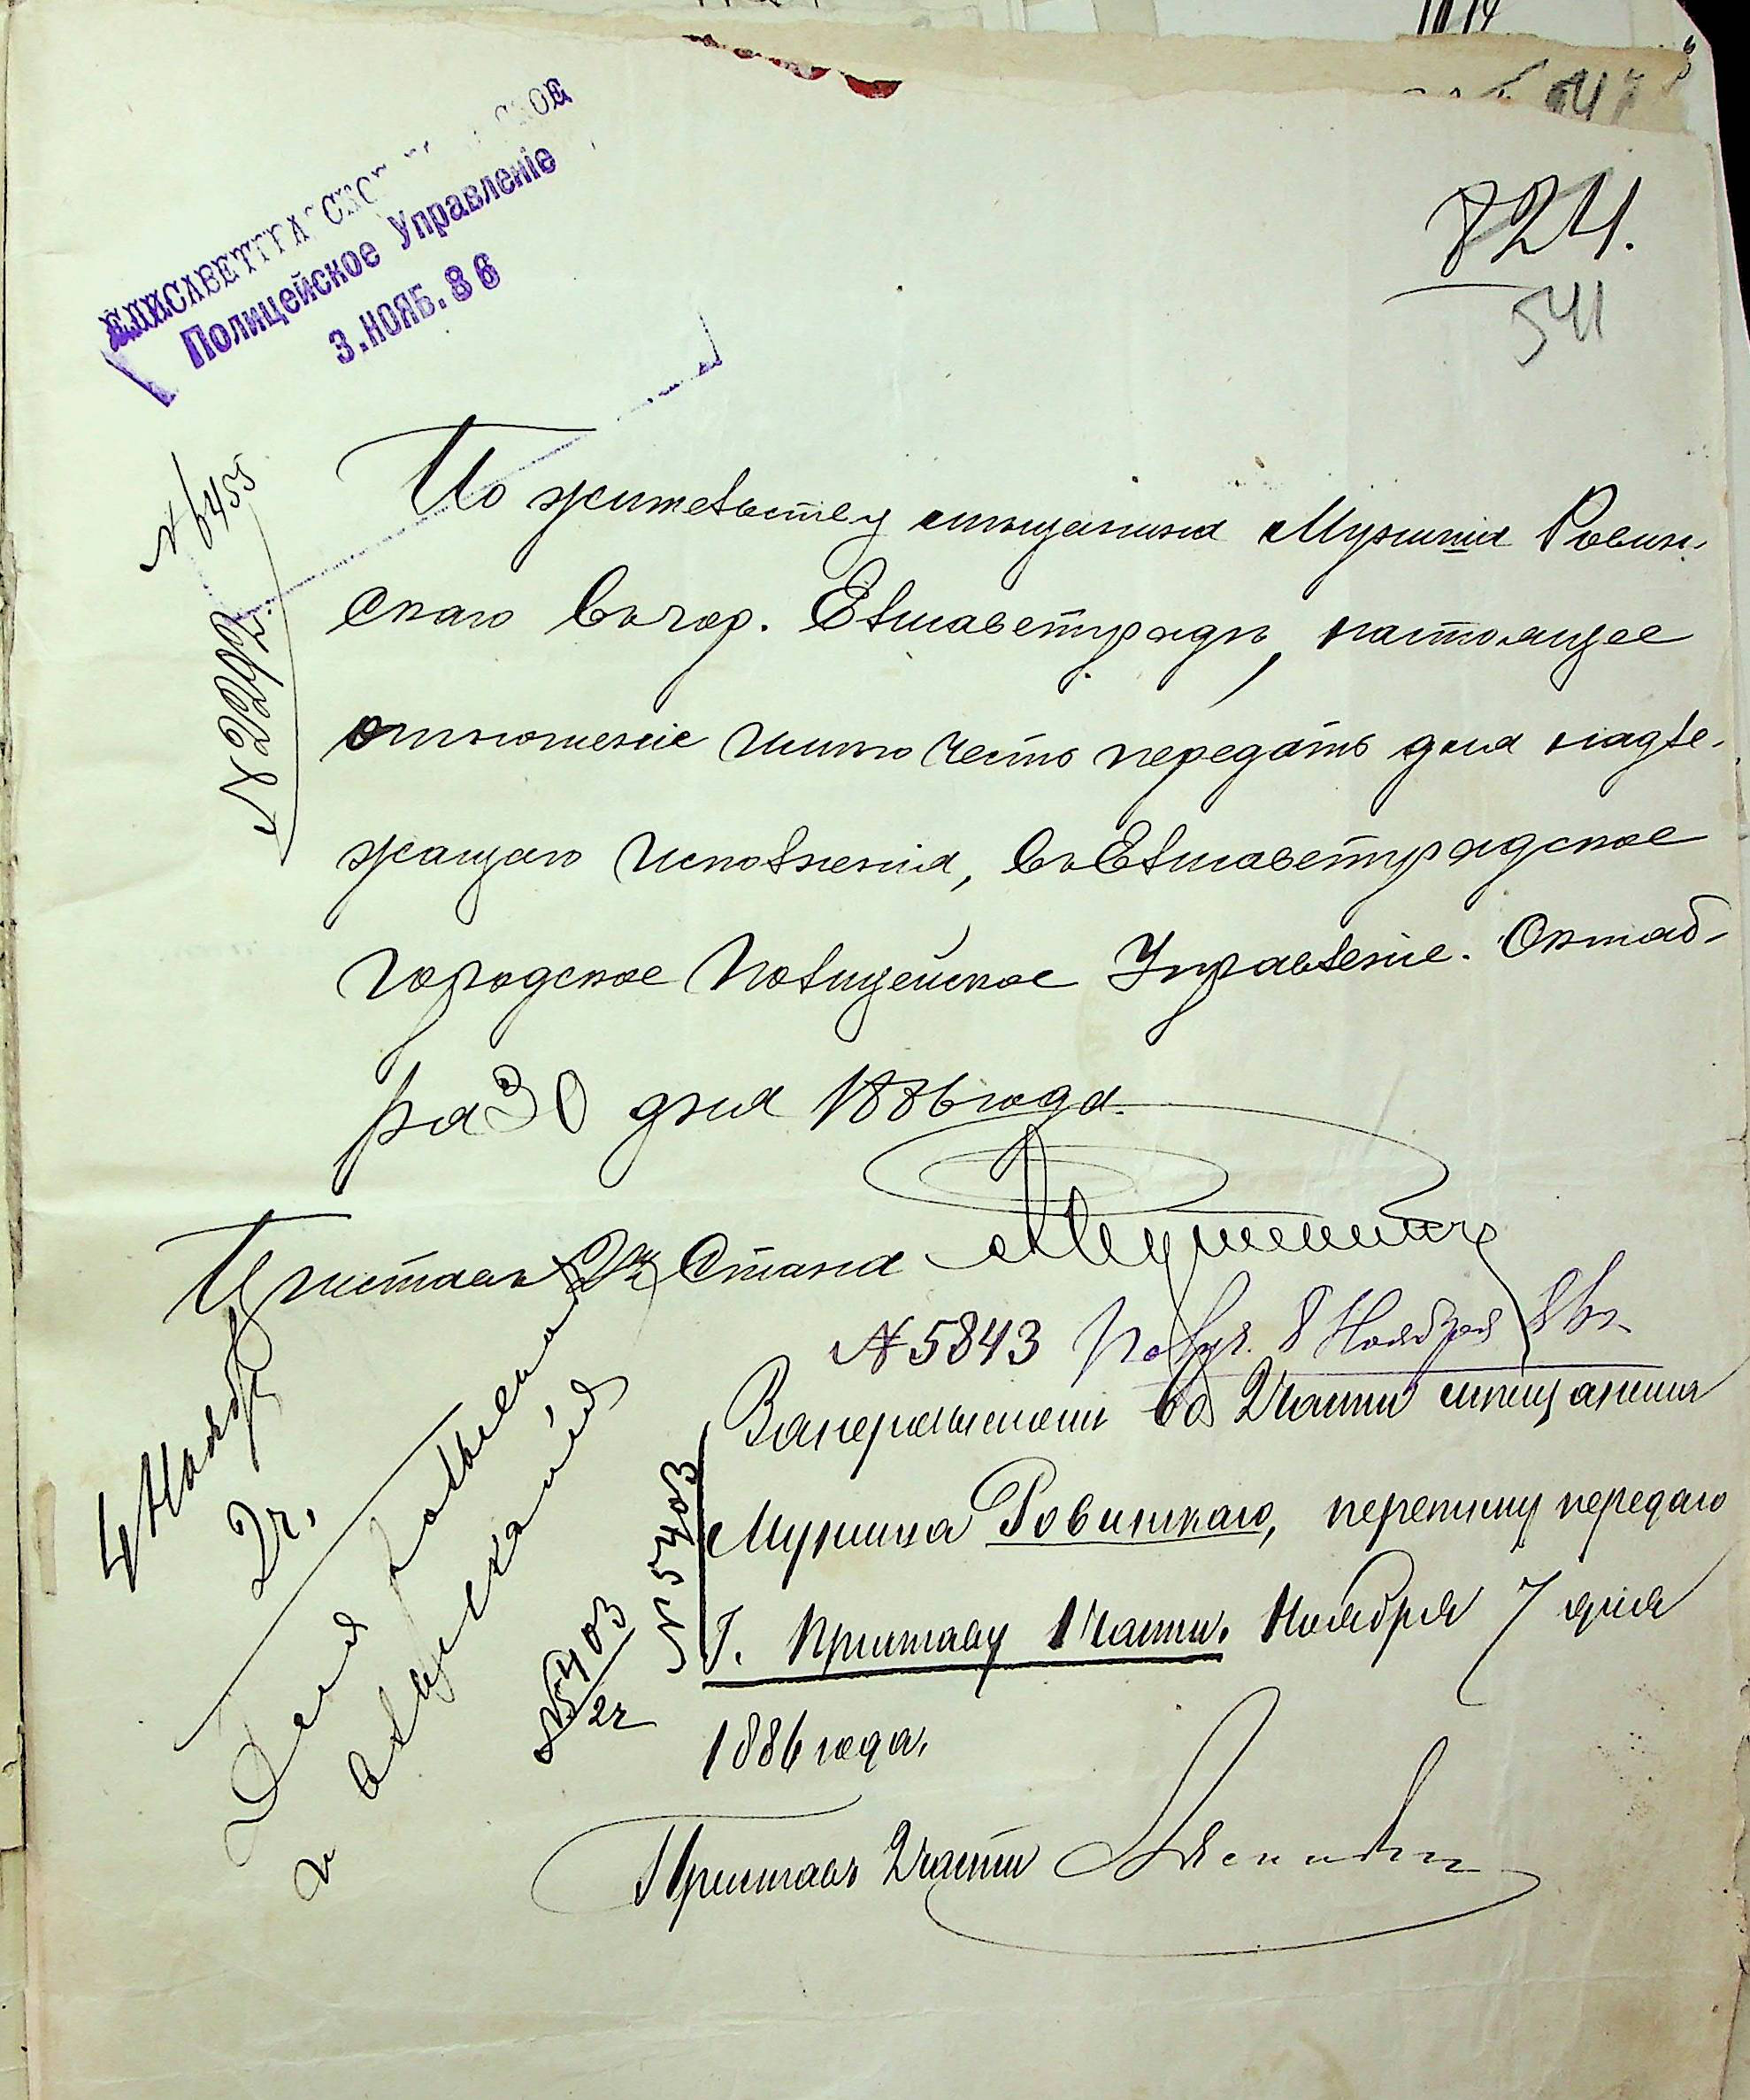 824.
541
ЕЛИСАВЕТГРАДСКОЕ
Полицейское Управленіе
3.НОЯБ.86
№ 6455
По жительству мѣщанина Мусшыа Ровин-
скаго въ гор. Елисаветградѣ, настоящее
отношеніе имѣю честь передать для надле-
жащаго исполненія, въ Елисаветградское
городское Полицейское Управленіе. Октяб-
ря 30 дня 1886 года.
Приставъ 2го Стана
№ 5843 Получ. 8 Ноября 86 г.
4 Ноября
2 ч.
Для
и взысканія
За нерозысканіемъ во 2 части мѣщанина
Ровинскаго, переписку передаю
Г. Приставу 1 части. Ноября 7 дня
1886 года.
№ 5403
№ 5403
2 ч
Приставъ 2 части